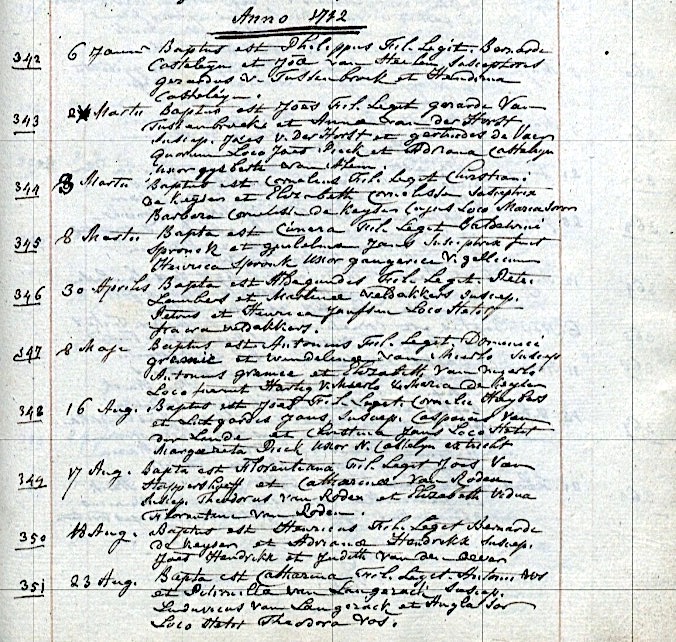 Anno 1712
342 6 Januarii Baptus est Philippus Fil. Legit. Bernardi
Casteleyn et Joæ van Haerlem, susceptores
gerardus v. Tussenbroek et Hendrina
Casteleyn.
343 Martii Baptus est Joes Fil. Legit gerardi Van
Tussenbroeke et Anna van der Horst,
suscep. Joes v. Der Horst et gertrudes de Vaer
quorum Loco Joes Dieck et Adriana Casteleyn
uxor gysberti van
344 8 Martii Baptus est Cornelius Fil. Legit Christiani
De Keyser et Elizabeth Cornelissen susceptrix
Barbara Cornelissen de Keyser cujus Loco Maria soror
345 8 Martii Bapta est Fil. Legit
Spronck et gulielma Jans susceptrix fuit
Henrica Spronk uxor
346 30 Aprilis Bapta est Aldegundis Fil. Legit. Petri
Lambers et Martinæ Veldakkers suscep.
Petrus et Henrica Janssen Loco Stetit
Veldakkers.
347 8 Maje Baptus est Antonius Fil. Legit Dominici
gramée et wendelinæ van Mierlo suscep
Antonius gramée et Elizabeth van
Loco fuerunt v. Mierlo Maria de Keyser
348 16 Aug. Baptus est Joes Fil. Legit Cornelii Huybers
et Luitgardis Jans, suscep. Casparus van
der Linde et Christina Jans Loco Stetit
Margareta Dieck uxor N. Casteleyn
349 17 Aug. Bapta est Florentiana Fil. Legit Joes van
et Catharinæ van Roden
suscep. Theodorus van Roden et Elizabeth vidua
Florentiani van Roden.
350 18 Aug. Baptus est Henricus Fil. Legit Bernardi
de Keyser et Adrianæ Hendrikx suscep.
Joes Hendrikx et Judith van den
351 23 Aug. Bapta est Catharina Fil. Legit. Antonii Vos
et Petronilla van Langerack suscep.
Ludovicus van Langerack et
Loco Stetit Theodora Vos.